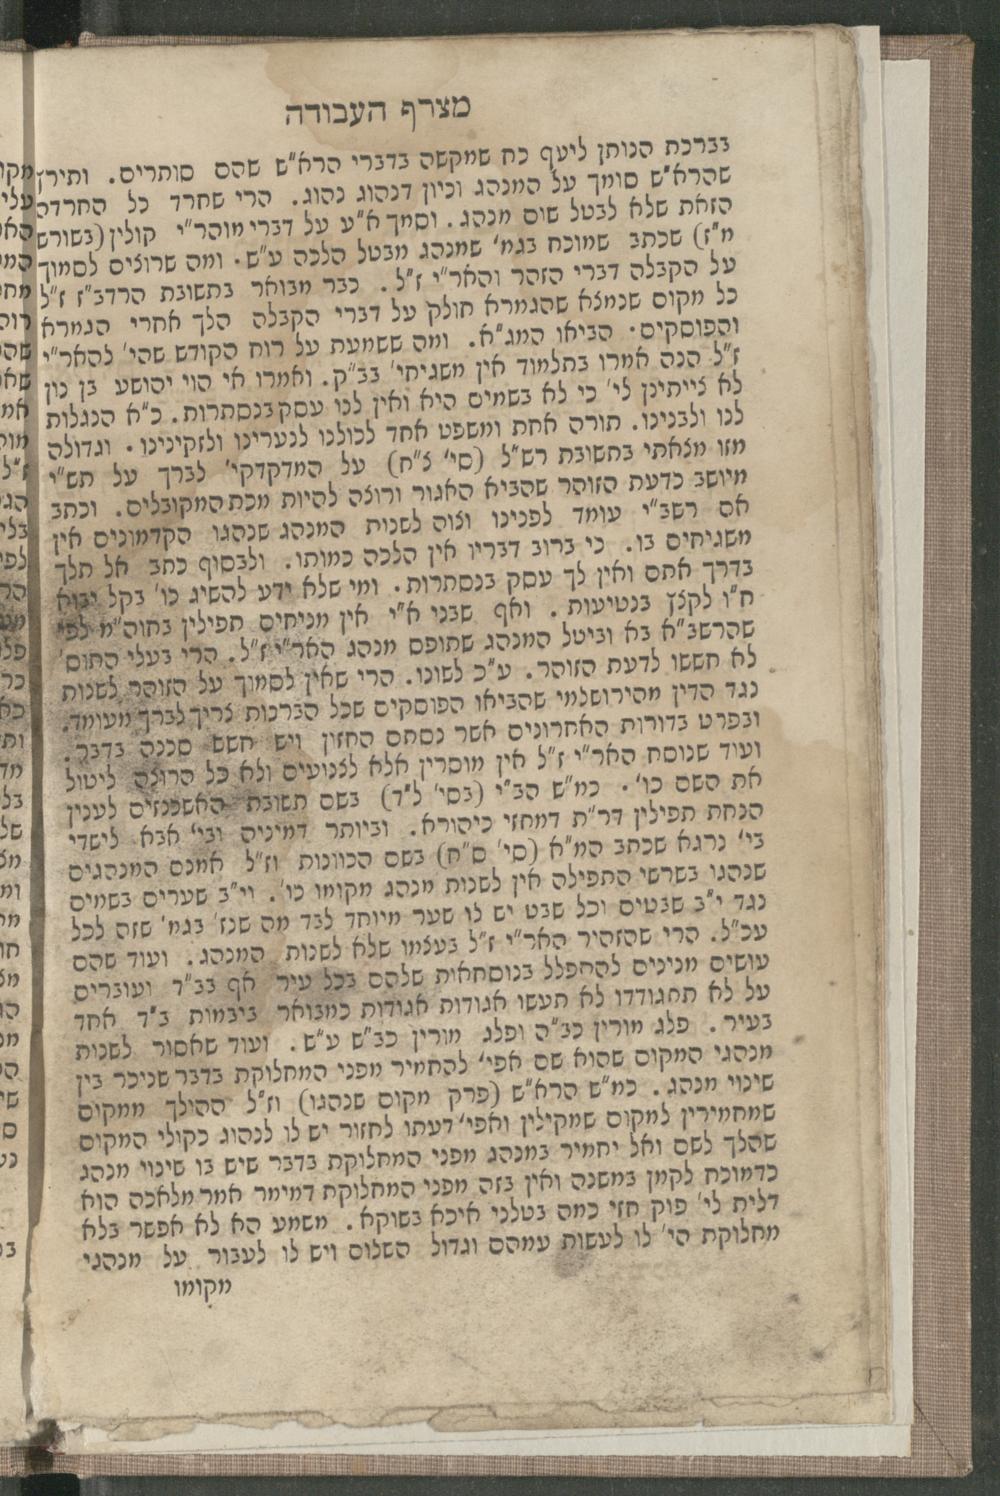 מצרף העבודה
בברכת הנותן ליעף כח שמקשה בדברי הרא"ש שהם סותרים. ותירץ
שהרא"ש סומך על המנהג וכיון דנהוג נהוג. הרי שחרד כל החרדה
הזאת שלא לבטל שום מנהג. וסמך א"ע על דברי מוהר"י קולין (בשורש
מ"ז) שכתב שמוכח בגמ' שמנהג מבטל הלכה ע"ש. ומה שרוצים לסמוך
על הקבלה דברי הזהר והאר"י ז"ל. כבר מבואר בתשובת הרדב"ז ז"ל
כל מקום שנמצא שהגמרא חולק על דברי הקבלה הלך אחרי הגמרא
והפוסקים. הביאו המג"א. ומה ששמעת על רוח הקודש שהי' להאר"י
ז"ל הנה אמרו בתלמוד אין משגיחי' בב"ק. ואמרו אי הוי יהושע בן נון
לא צייתינן לי' כי לא בשמים היא ואין לנו עסק בנסתרות. כ"א הנגלות
לנו ולבנינו. תורה אחת ומשפט אחד לכולנו לנערינו ולזקינינו. וגדולה
מזו מצאתי בתשובת רש"ל (סי' צ"ח) על המדקדקי' לברך על תש"י
מיושב כדעת הזוהר שהביא האגור ורוצה להיות מכת המקובלים. וכתב
אם רשב"י עומד לפנינו וצוה לשנות המנהג שנהגו הקדמונים אין
משגיחים בו. כי ברוב דבריו אין הלכה כמותו. ולבסוף כתב אל תלך
בדרך אתם ואין לך עסק בנסתרות. ומי שלא ידע להשיג כו' בקל יבוא
ח"ו לקצץ בנטיעות. ואף שבני א"י אין מניחים תפילין בחוה"מ לפי
שהרשב"א בא וביטל המנהג שתופס מנהג האר"י ז"ל. הרי בעלי התוס'
לא חששו לדעת הזוהר. ע"כ לשונו. הרי שאין לסמוך על הזוהר לשנות
נגד הדין מהירושלמי שהביאו הפוסקים שכל הברכות צריך לברך מעומד.
ובפרט בדורות האחרונים אשר נסתם החזון ויש חשש סכנה בדבר.
ועוד שנוסח האר"י ז"ל אין מוסרין אלא לצנועים ולא כל הרוצה ליטול
את השם כו'. כמ"ש הב"י (בסי' ל"ד) בשם תשובת האשכנזים לענין
הנחת תפילין דר"ת דמחזי כיהורא. וביותר דמיניה ובי' אבא לישדי
בי' נרגא שכתב המ"א (סי' ס"ח) בשם הכוונות וז"ל אמנם המנהגים
שנהגו בשרשי התפילה אין לשנות מנהג מקומו כו'. וי"ב שערים בשמים
נגד י"ב שבטים וכל שבט יש לו שער מיוחד לבד מה שנז' בגמ' שזה לכל
עכ"ל. הרי שהזהיר האר"י ז"ל בעצמו שלא לשנות המנהג. ועוד שהם
עושים מנינים להתפלל בנוסחאות שלהם בכל עיר אף בב"ד ועוברים
על לא תתגודדו לא תעשו אגודות אגודות כמבואר ביבמות ב"ד אחד
בעיר. פלג מורין כב"ה ופלג מורין כב"ש ע"ש. ועוד שאסור לשנות
מנהגי המקום שהוא שם אפי' להחמיר מפני המחלוקת בדבר שניכר בין
שינוי מנהג. כמ"ש הרא"ש (פרק מקום שנהגו) וז"ל ההולך ממקום
שמחמירין למקום שמקילין ואפי' דעתו לחזור יש לו לנהוג כקולי המקום
שהלך לשם ואל יחמיר במנהג מפני המחלוקת בדבר שיש בו שינוי מנהג
כדמוכח לקמן במשנה ואין בזה מפני המחלוקת דמימר אמר מלאכה הוא
דלית לי' פוק חזי כמה בטלני איכא בשוקא. משמע הא לא אפשר בלא
מחלוקת הי' לו לעשות עמהם וגדול השלום ויש לו לעבור על מנהגי
מקומו